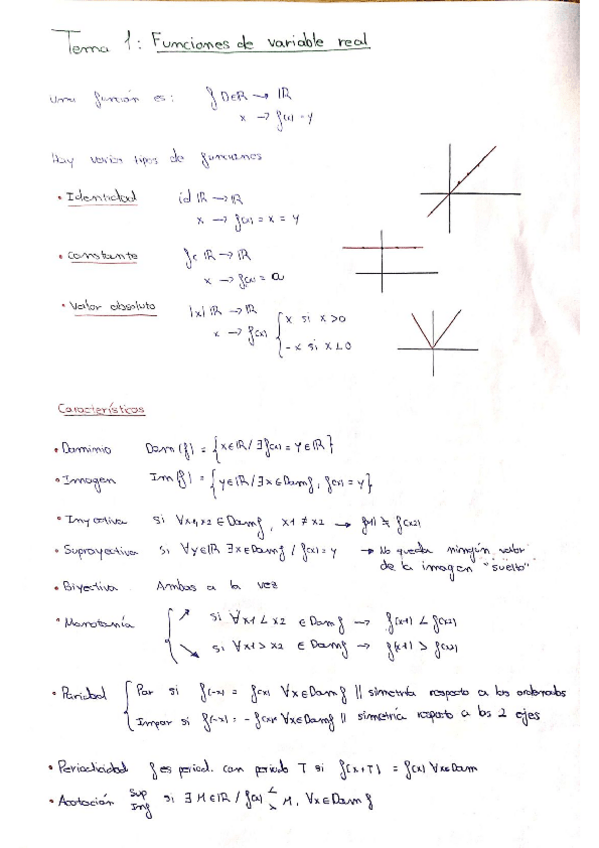 Tema 1: Funciones de variable real
Una función es: f D∈R → IR
x → f(x) = y
Hay varios tipos de funciones
• Identidad id IR → IR
x → f(x) = x = y
• Constante fc IR → IR
x → f(x) = a
• Valor absoluto |x| IR → IR
x → f(x) { x si x>0
-x si x<0
Características
• Dominio Dom(f) = {x∈IR / ∃ f(x) = y∈IR}
• Imagen Im(f) = {y∈IR / ∃x∈Domf, f(x) = y}
• Inyectiva si ∀x1,x2 ∈ Domf, x1 ≠ x2 → f(x1) ≠ f(x2)
• Suprayectiva si ∀y∈IR ∃x∈Domf / f(x) = y → No queda ningún valor
de la imagen "suelto"
• Biyectiva Ambas a la vez
• Monotonía { ↗ si ∀x1 < x2 ∈ Domf → f(x1) < f(x2)
↘ si ∀x1 > x2 ∈ Domf → f(x1) > f(x2)
• Paridad { Par si f(-x) = f(x) ∀x∈Domf || simetría respecto a las ordenadas
Impar si f(-x) = -f(x) ∀x∈Domf || simetría respato a los 2 ejes
• Periodicidad f es period. con periodo T si f(x+T) = f(x) ∀x∈Dom
• Acotación Sup Inf si ∃ M∈IR / f(x) < > M, ∀x∈Domf